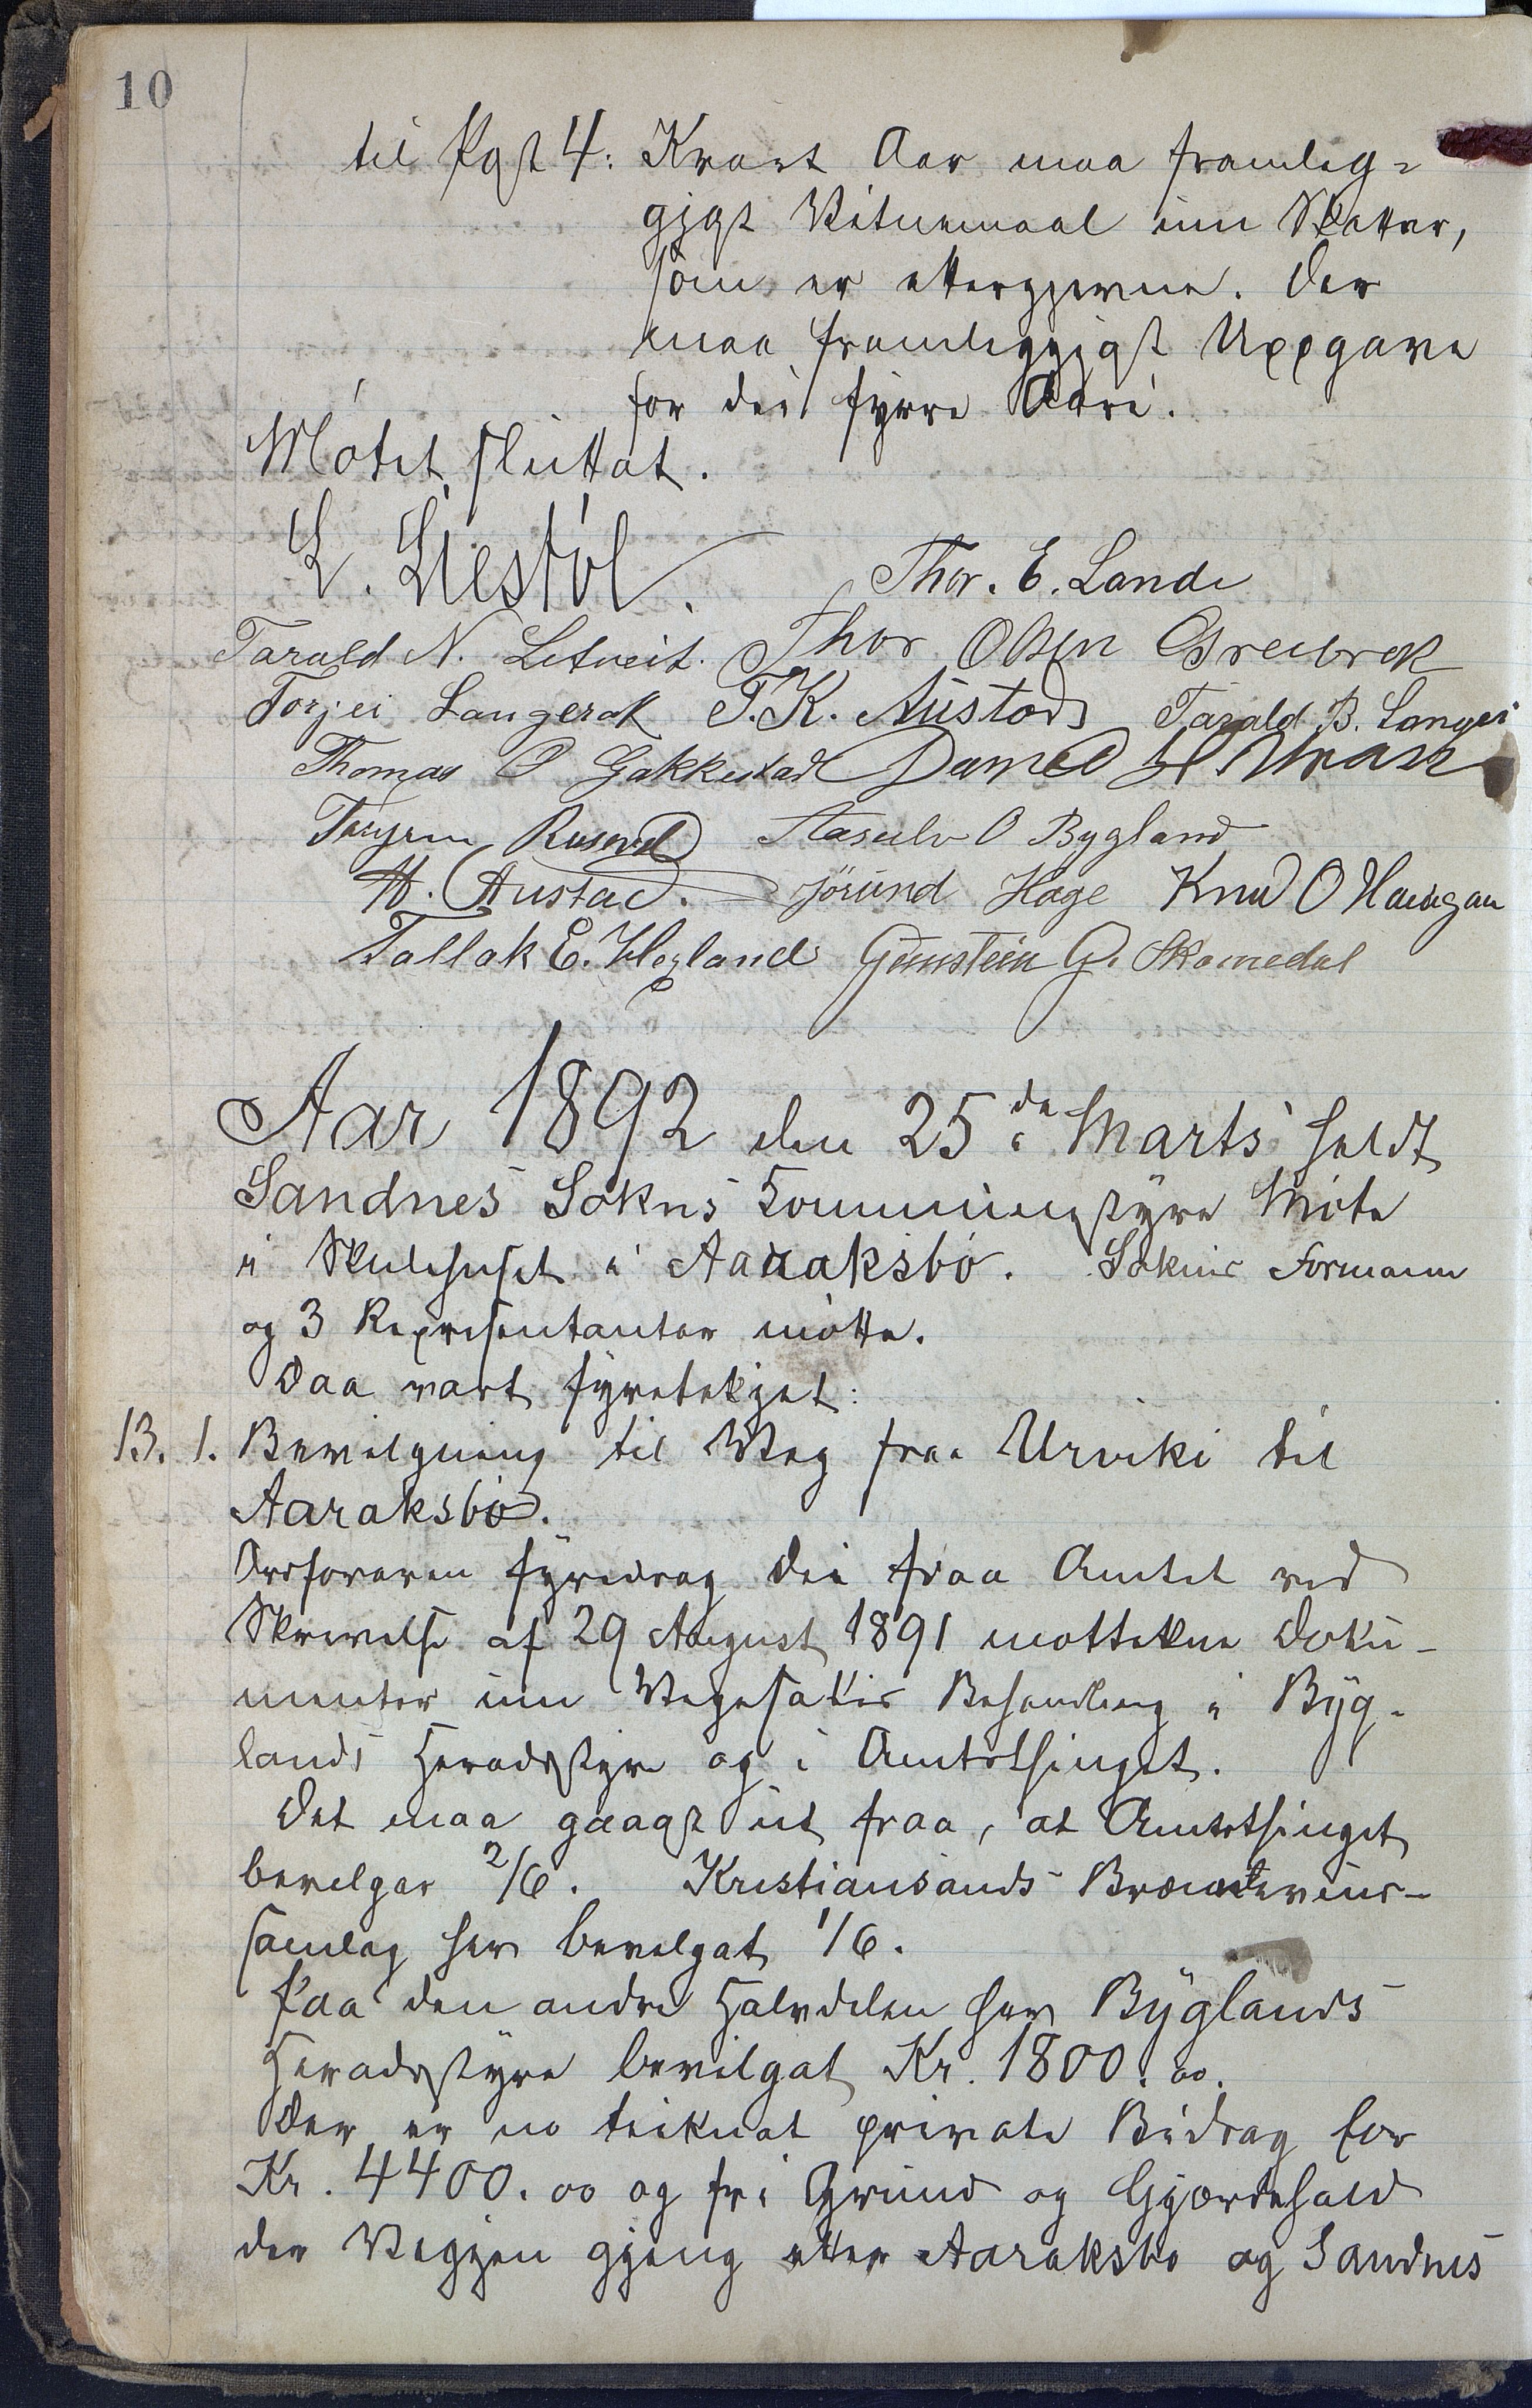 10
til Pgst 4: Kvart Aar maa framleg-
gjast Vitnemaal um Skattar,
som er ettergjevne. Der
maa framleggjast Uppgave
for dei fyrre Aari.
Mötet sluttat.
L. Liestöl. Thor. E. Lande
Tarald N. Litveit. Thor Olsen Greibrok
Torjei Langerak T. K. Austad Tarald B. Langei
Thomas O Gakkestad Daniel H
Rusendal Aasulv O Bygland
A. Austad. Jörund Hage Knud O
Tallak E. Heyland Gunstein G. Skomedal
Aar 1892 den 25de Marts heldt
Sandnes Sokns Kommunestyre Möte
i Skulehuset i Aaraksbö. Soknis Formann
og 3 Representantar mötte.
Daa vart fyreteikjet:
13. 1. Bevilgning til Veg fraa Urviki til
Aaraksbö.
Ordforaren fyredrog dei fraa Amtet ved
Skrivelse af 29 August 1891 mottekne Doku-
menter um Vegesakis Behandling i Byg-
lands Heradsstyre og i Amtstinget.
Det maa gaast ut fraa, at Amtstinget
bevilgar 2/6. Kristiansands Brændevins-
samlag hev bevilgat 1/6.
Paa den andre Halvdelen hev Byglands
Heradsstyre bevilgat Kr. 1800.00.
Der er no teiknat private Bidrag for
Kr. 4400.00 og fri Grund og Gjærdehald
der Vegjen gjeng etter Aaraksbö og Sandnes